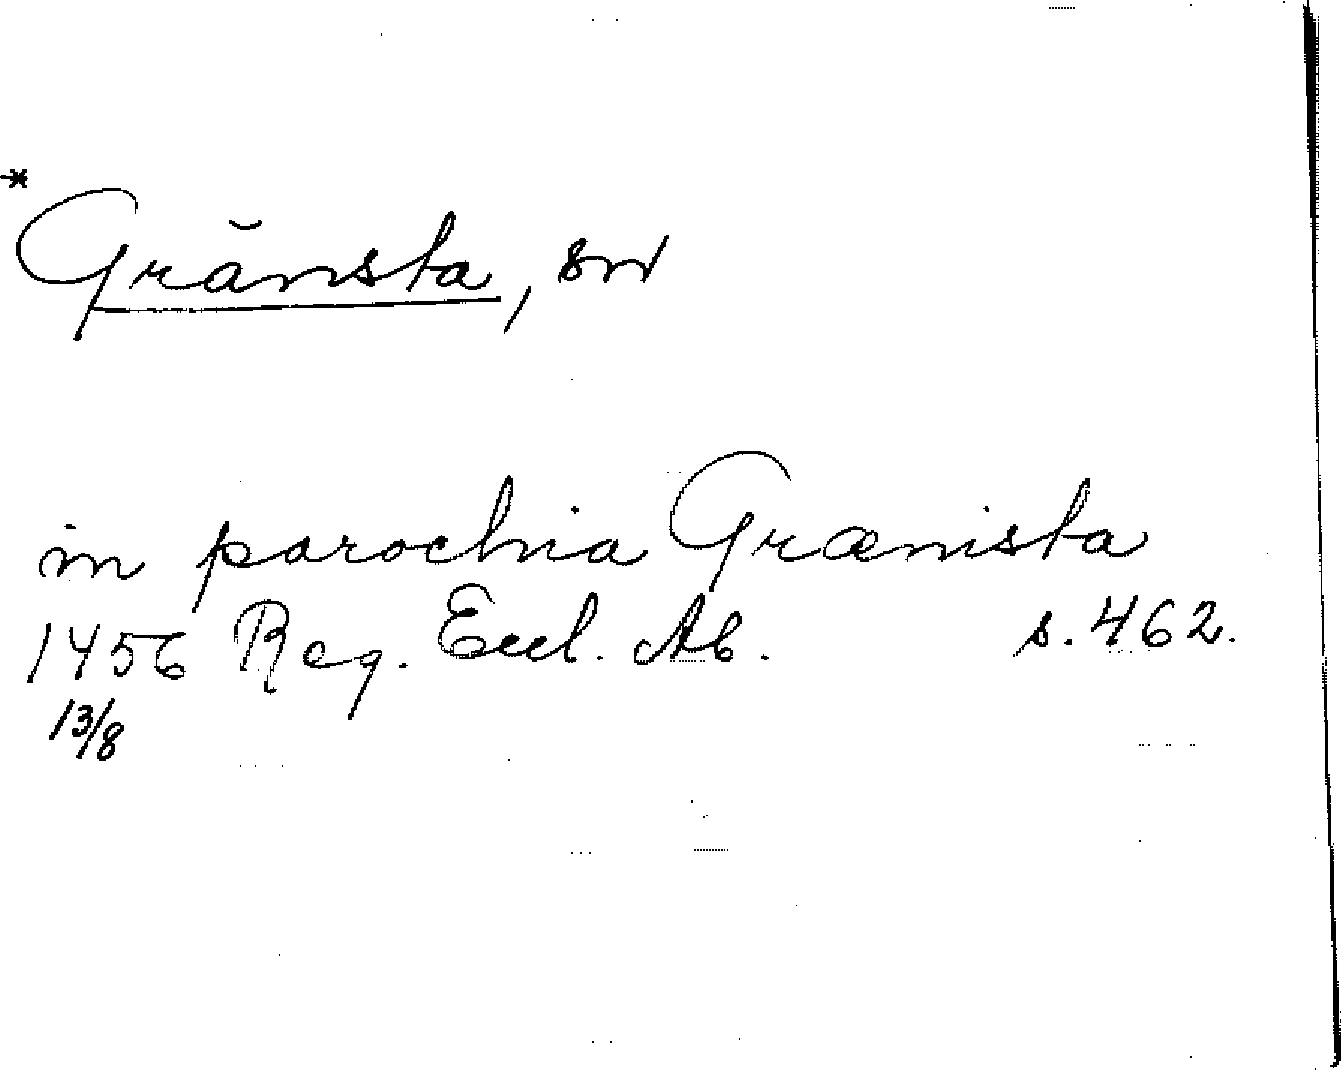 *
Gränsta, sn
in parochia Grænista
1456 Reg. Eccl. Ab. s. 462.
13/8